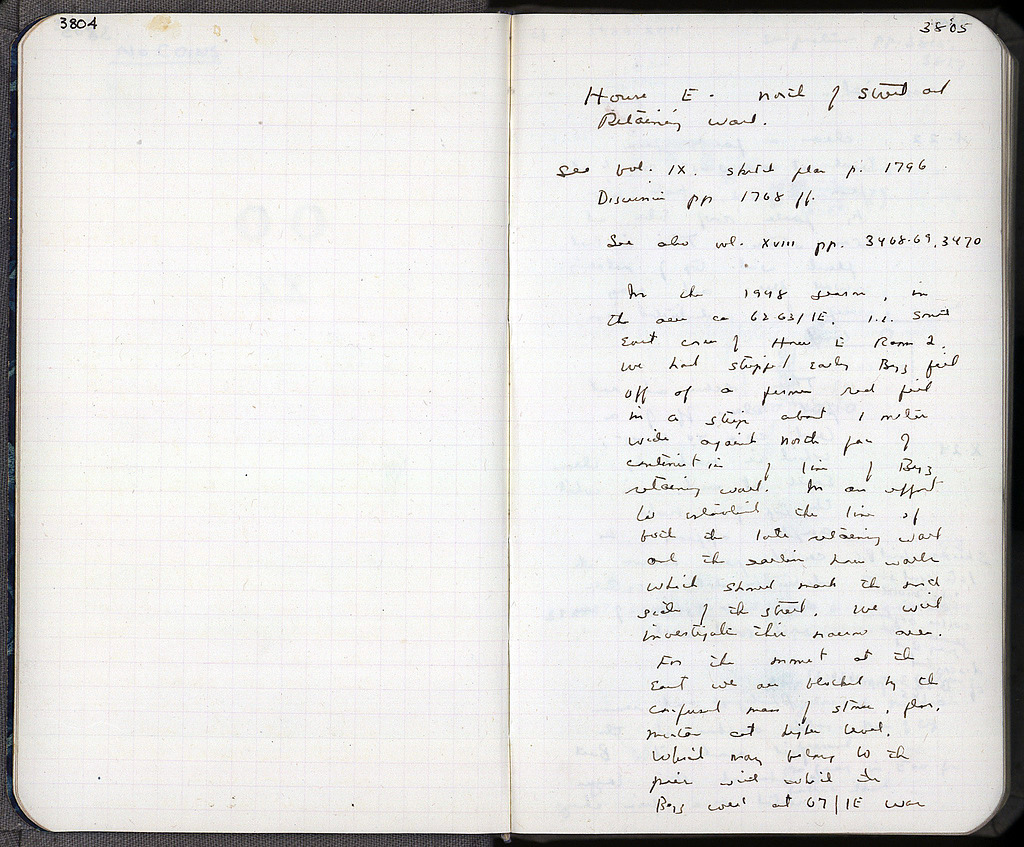 3804
3805
House E. north of street and
Retaining wall.
See vol. IX. sketch plan p. 1796
Discussion pp 1768 ff.
See also vol. XVIII pp. 3468-69, 3470
In the 1948 season, in
the area ca 62-63/1E, i.e. South
East corner of House E Room 2.
we had stripped early Byz fill
off of a firmer red fill
in a strip about 1 meter
wide against north face of
continuation of line of Byz
retaining wall. In an effort
to establish the line of
both the late retaining wall
and the earlier house walls
which should mark the north
side of the street, we will
investigate this narrow area.
For the moment at the
East we are blocked by the
confused mass of stone,
mortar at higher level.
which may belong to the
pier with which the
Byz wall at 67/1E was